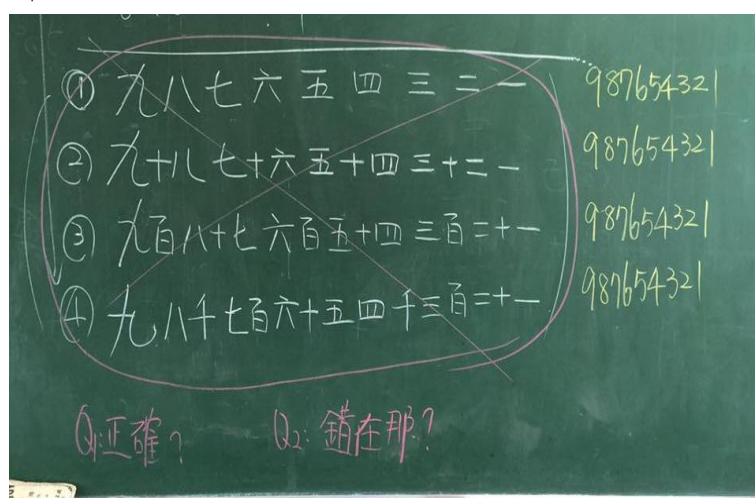 ① 九八七六五四三二一 987654321
② 九十八七十六五十四三十二一 987654321
③ 九百八十七六百五十四三百二十一 987654321
④ 九八千七百六十五四千三百二十一 987654321
Q1:正確? Q2:錯在那?